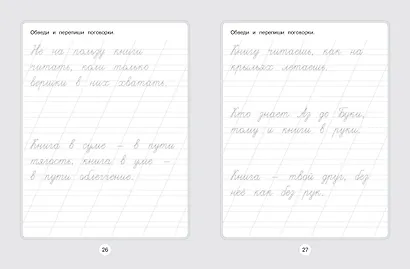 Обведи и перепиши поговорки.
Не на пользу книги
читать, коли только
вершки в них хватать.
Книга в суме – в пути
тягость, книга в уме –
в пути облегчение.
26
Обведи и перепиши поговорки.
Книгу читаешь, как на
крыльях летаешь.
Кто знает Аз до Буки,
тому и книги в руки.
Книга – твой друг, без
неё как без рук.
27